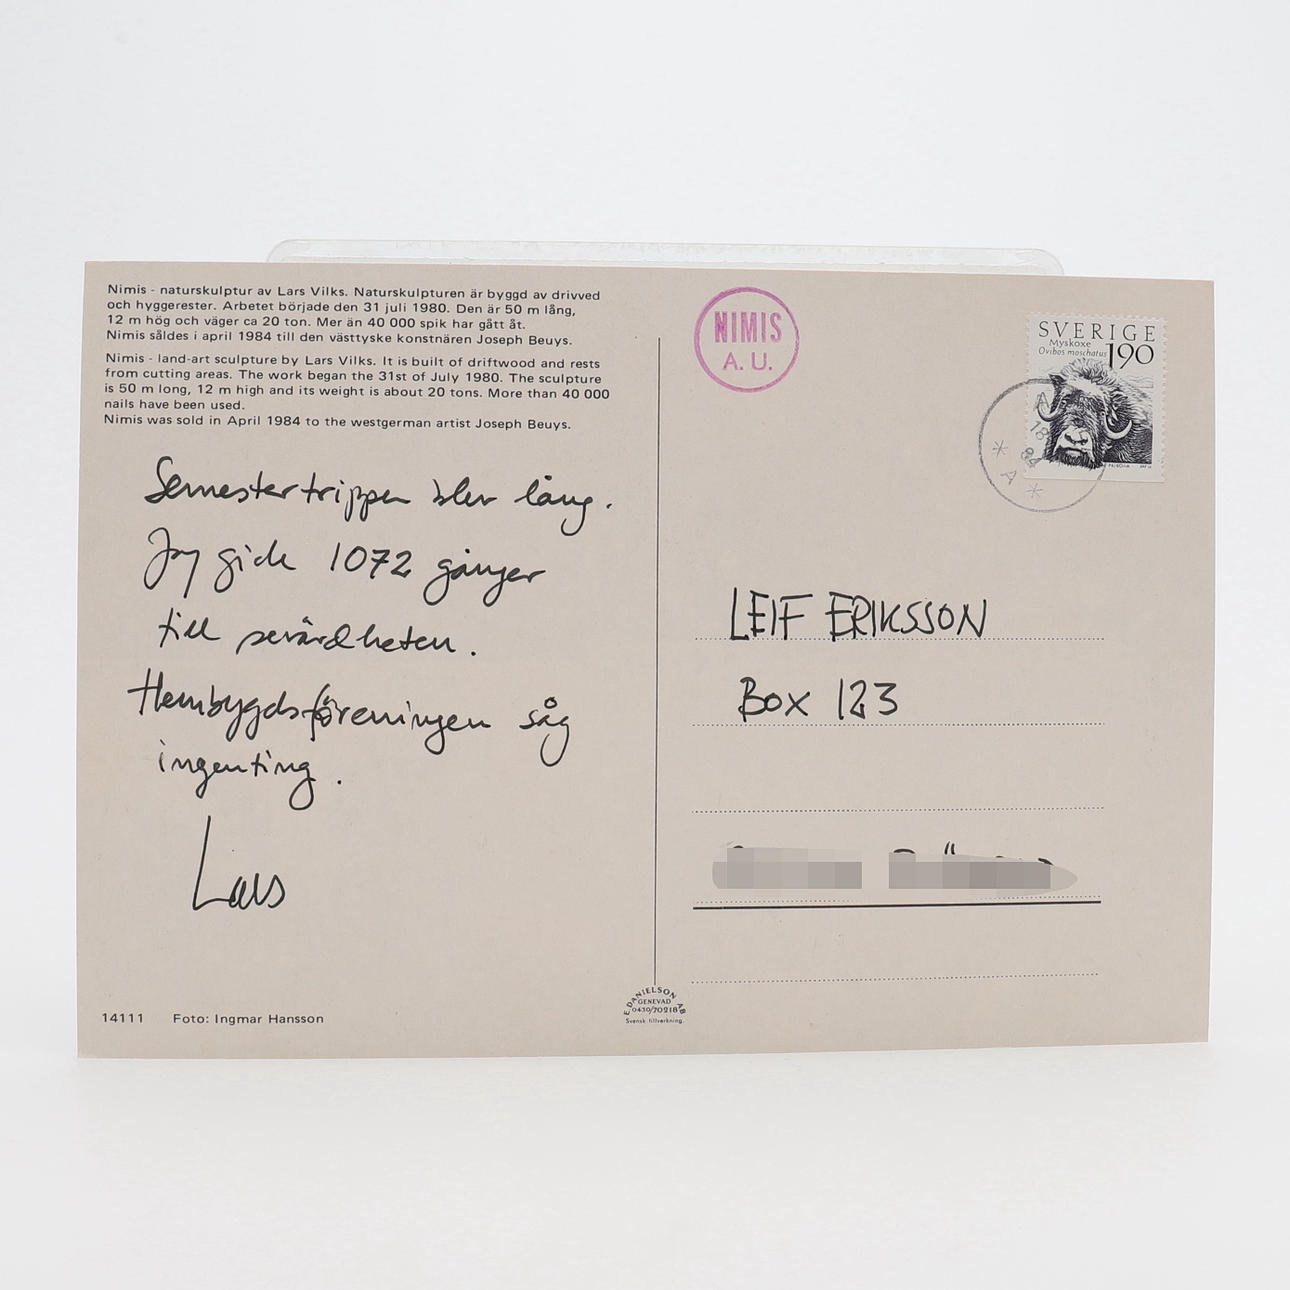 Nimis - naturskulptur av Lars Vilks. Naturskulpturen är byggd av drivved
och hyggerester. Arbetet började den 31 juli 1980. Den är 50 m lång,
12 m hög och väger ca 20 ton. Mer än 40 000 spik har gått åt.
Nimis såldes i april 1984 till den västtyske konstnären Joseph Beuys.
Nimis - land-art sculpture by Lars Vilks. It is built of driftwood and rests
from cutting areas. The work began the 31st of July 1980. The sculpture
is 50 m long, 12 m high and its weight is about 20 tons. More than 40 000
nails have been used.
Nimis was sold in April 1984 to the westgerman artist Joseph Beuys.
Semestertrippen blev lång.
Jag gick 1072 gånger
till sevärdheten.
Hembygdsföreningen såg
ingenting.
Lars
14111 Foto: Ingmar Hansson
E. DANIELSON AB
GENEVAD
0430/70218
Svensk tillverkning.
NIMIS
A. U.
SVERIGE
Myskoxe
Ovibos moschatus
190
A
18
84
* A *
LEIF ERIKSSON
BOX 123